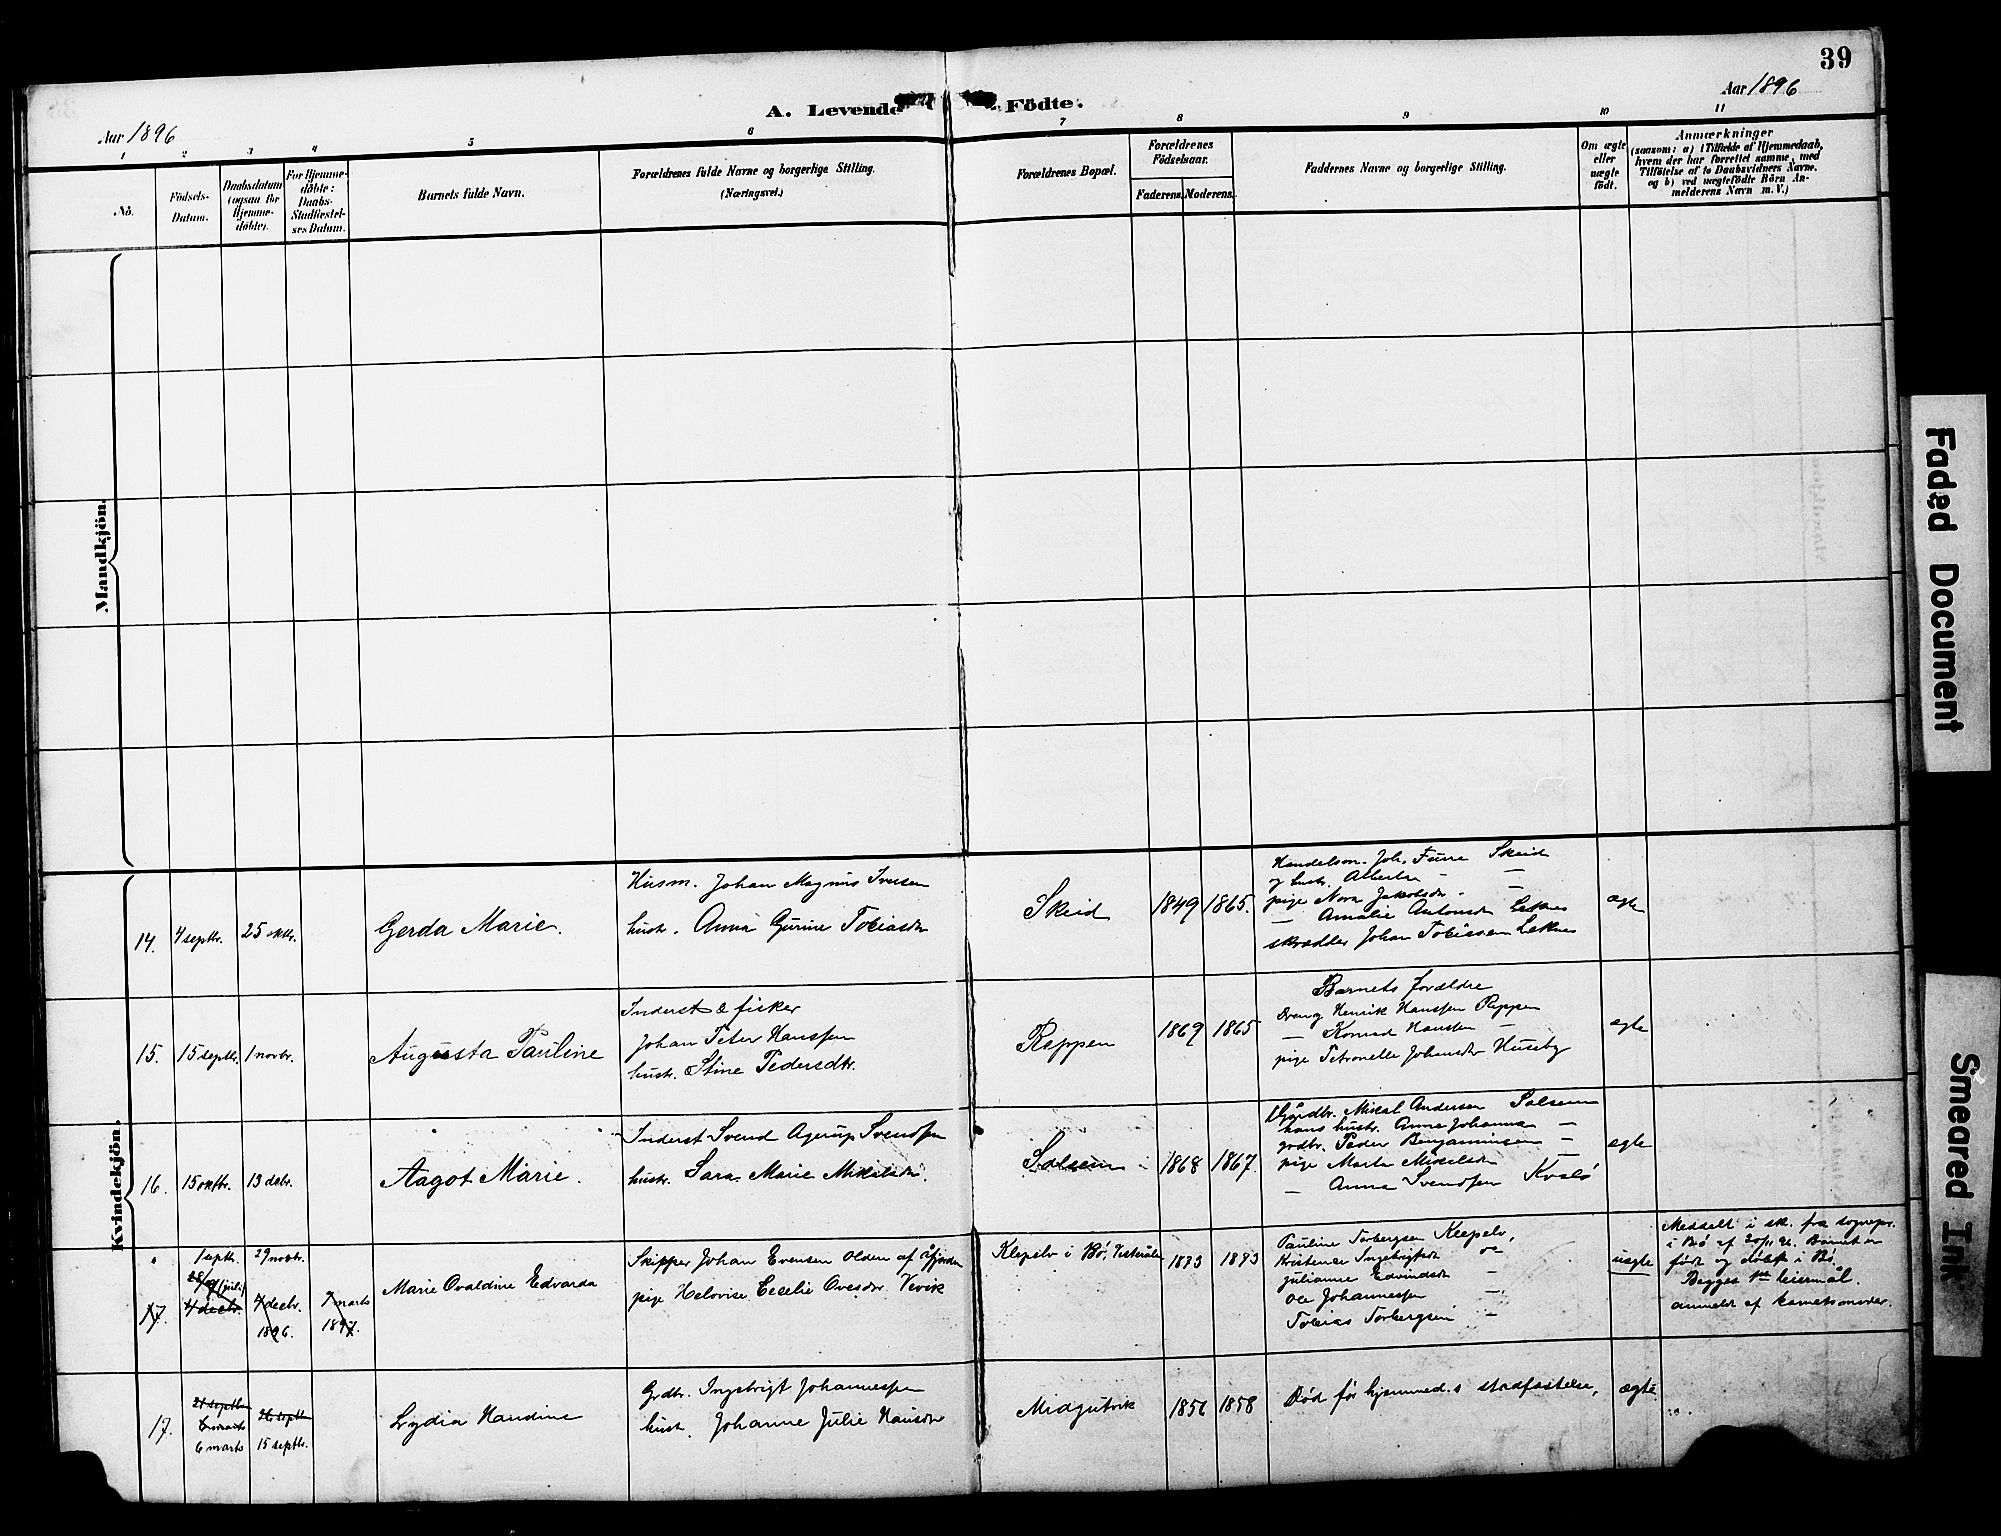 39
Aar 1896
A. Levende Födte.
Aar 1896
1 2 3 4 5 6 7 8 9 10 11
No.
Födsels-Datum.
Daabsdatum (ogsaa for Hjemme-döbte).
For Hjemme-döbte: Daabs-Stadfæstel-ses Datum.
Barnets fulde Navn.
Forældrenes fulde Navne og borgerlige Stilling.
(Næringsvei.)
Forældrenes Bopæl.
Forældrenes Födselsaar.
Faderens.
Moderens.
Faddernes Navne og borgerlige Stilling.
Om ægte eller uægte født.
Anmærkninger
(saasom: a) i Tilfælde af Hjemmedaab,
hvem der har forrettet samme, med
Tilföielse af to Daabsvidners Navne,
og b) ved uægtefödte Börn An-
melderens Navn m. V.)
Mandkjön.
Kvindekjön.
14. 4 septbr. 25 oktbr.
Gerda Marie.
Husm. Johan Magnus Iversen
hustr. Anna Gurine Tobiasdtr
Skeid
1849 1865.
Handelsm. Joh. Furre Skeid
og hustr. Albertine - -
pige Nora Jakobsdtr - -
— Amalie Antonsdtr Leknes
skrædder Johan Tobiassen Leknes
ægte
15. 15 septbr. 1 novbr.
Augusta Pauline
Inderst & fisker
Johan Peter Hanssen
hustr. Stine Pedersdtr.
Reppen
1869 1865
Barnets forældre
Dreng Henrik Hanssen Reppen
— Konrad Hanssen —
pige Petronelle Johansdtr Huseby
ægte
16. 15 oktbr. 13 debr.
Aagot Marie.
Inderst Svend Agerup Svendsen
hustr. Sara Marie Mikalsdtr.
Solsem
1868 1867.
Gårdbr. Mikal Andersen Solsem
hans hustr. Anna Johanna —
grdbr. Peder Benjaminsen —
pige Marta Mikalsdtr
— Anna Svendsen Kvalö
ægte
17. 1 septbr. 29 novbr.
28/9 (juli)
4 decbr. 4 decbr. 1896. 7 marts 1897.
Marie Ovaldine Edvarda
Skipper Johan Evensen Olden af Åfjorden
pige Helovise Cecelie Ovesdtr Vevik
Klepelv i Bö, Vesterålen
1873 1873
Pauline Torbergsen Klepelv,
Kristense Ingebrigtsdtr
Julianne Edvindsdtr —
Ole Johannessen —
Tobias Torbergsen —
uægte
Meddelt i sk. fra sognepr.
i Bö af Barnet er
født og døbt i Bö.
Begges 1ste leiermål.
anmeldt af barnets moder.
17. 21 septbr. 6 marts 6 marts
26 septbr. 15 septbr.
Lydia Handine
Grdbr. Ingebrigt Johannessen
hustr. Johanne Julie Hansdtr
Midgutvik
1856 1858
Död för hjemmed.s stadfæstelse,
ægte
Faded Document
Smeared Ink